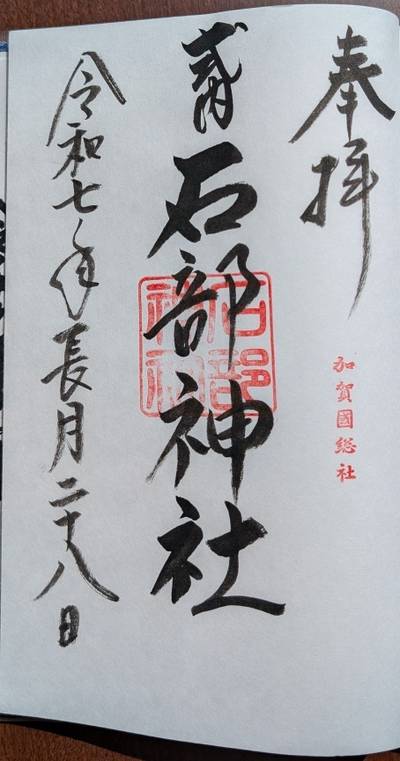 奉拝
加賀國総社
式内石部神社
石部
神社
令和七年長月二十八日